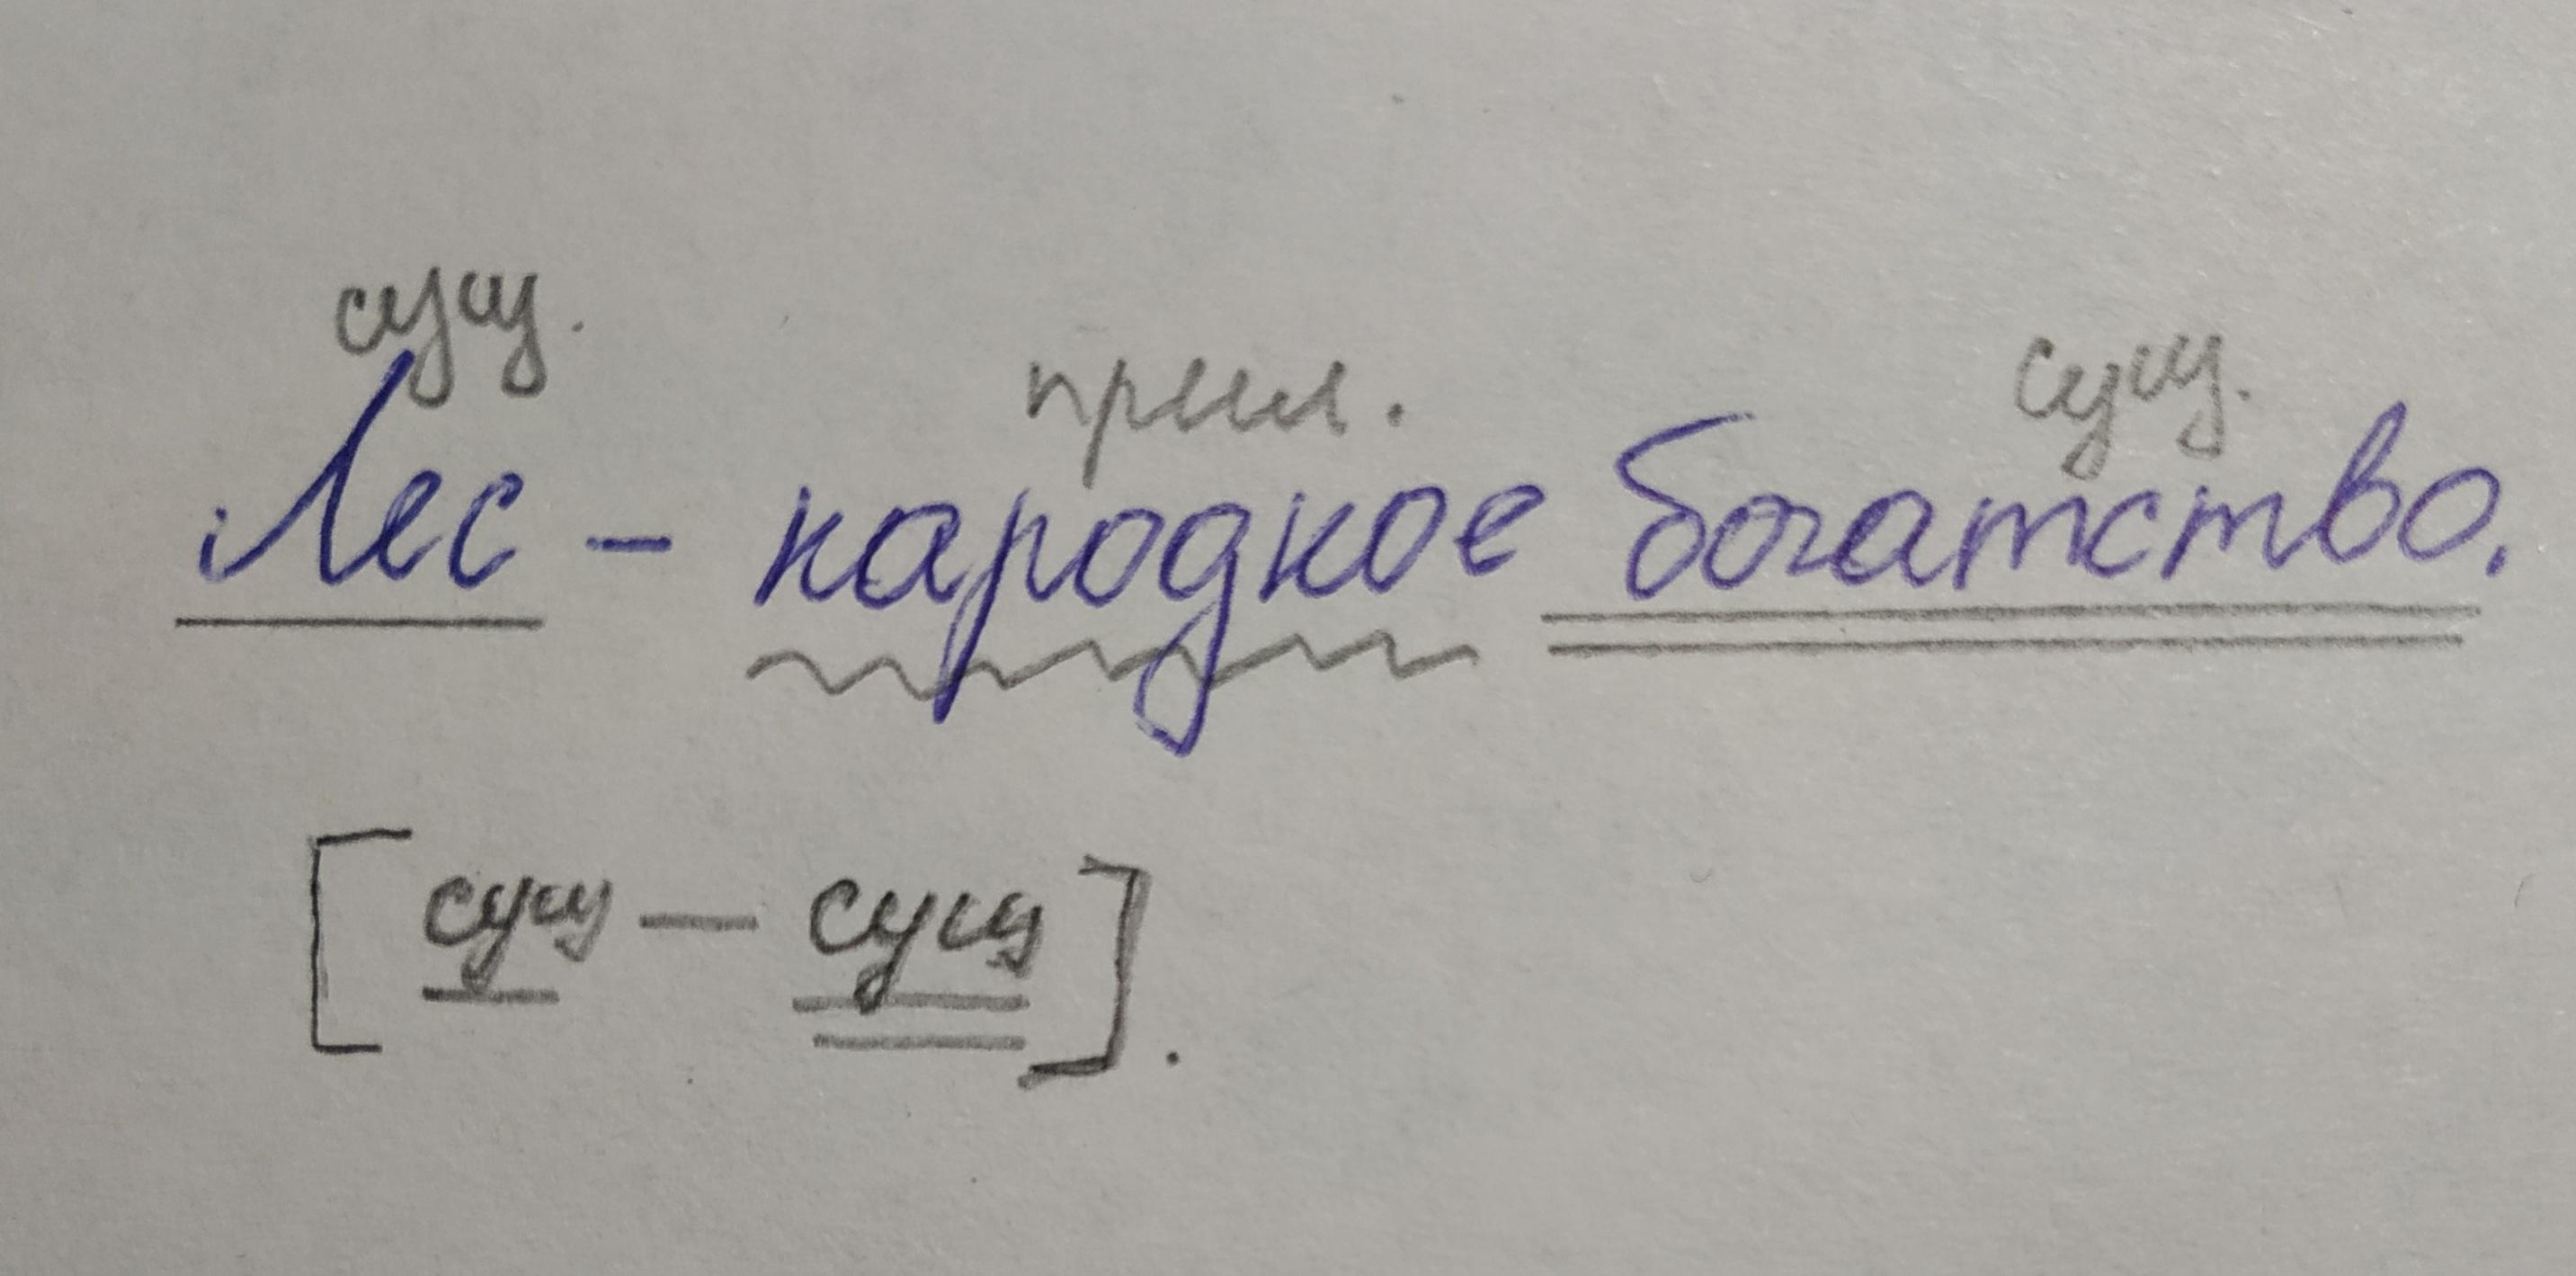 сущ. прил. сущ.
Лес – народное богатство.
[сущ — сущ].